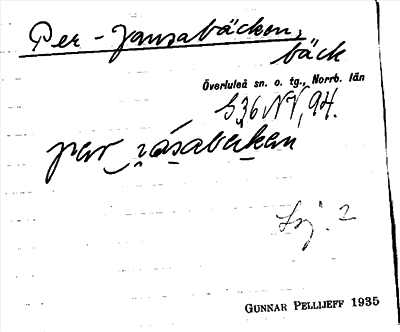 Per-Jansabäcken,
bäck
Överluleå sn. o. tg., Norrb. län
G36 NV, 94.
per
GUNNAR PELLIJEFF 1935